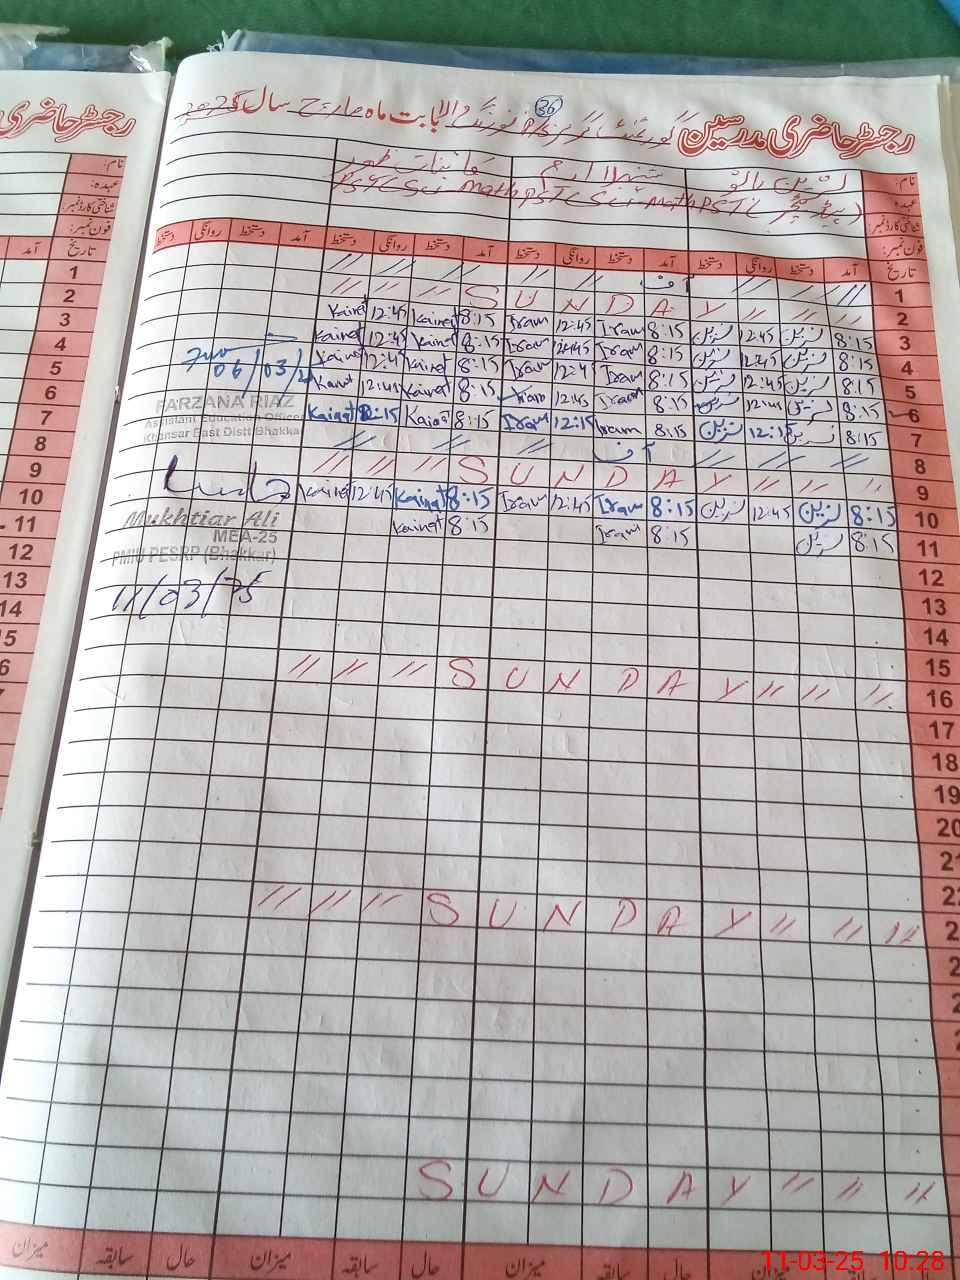 رجسٹر حاضری مدرسین
36
بابت ماہ مارچ سال 2025
رجسٹر حاضری
نام:
عہدہ:
شناختی کارڈ نمبر:
فون نمبر:
تاریخ آمد
نام:
عہدہ
شناختی کارڈ نمبر:
فون نمبر:
PST (Sci-Math PST (Sci-Math PST (
تاریخ آمد دستخط روانگی دستخط آمد دستخط روانگی دستخط آمد دستخط روانگی دستخط آمد دستخط روانگی دستخط
1
2 SUNDAY
3 8:15 نسرین 12:45 نسرین 8:15 Iram 12:45 Iram 8:15 Kainat 12:45 Kainat
4 8:15 نسرین 12:45 نسرین 8:15 Iram 12:45 Iram 8:15 Kainat 12:45 Kainat
5 8:15 نسرین 12:45 نسرین 8:15 Iram 12:45 Iram 8:15 Kainat 12:45 Kainat
6 8:15 نسرین 12:45 نسرین 8:15 Iram 12:45 Iram 8:15 Kainat 12:45 Kainat
7 8:15 نسرین 12:15 نسرین 8:15 Iram 12:15 Iram 8:15 Kainat 12:15 Kainat
06/03/
FARZANA RIAZ
Assistant Education Officer
Khansar East Distt Bhakkar
8
9 SUNDAY
10 8:15 نسرین 12:45 نسرین 8:15 Iram 12:45 Iram 8:15 Kainat 12:45 Kainat
11 8:15 نسرین 8:15 Iram 8:15 Kainat
Mukhtiar Ali
MEA-25
PMIU PESRP (Bhakkar)
11/03/25
12
13
14
15
16 SUNDAY
17
18
19
20
21
22
2 SUNDAY
2
2
2
SUNDAY
میزان سابقہ حال میزان سابقہ حال میزان سابقہ حال میزان
11-03-25 10:28